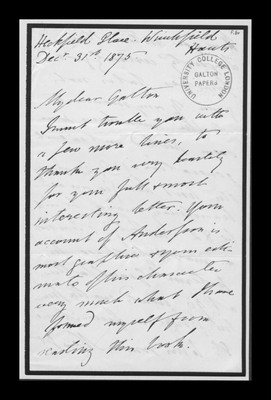 Heckfield Place. Winchfield
Hants
Decr. 31st. 1875
UNIVERSITY COLLEGE LONDON
GALTON
PAPERS
My dear Galton
I must trouble you with
a few more lines, to
thank you very heartily
for your full & most
interesting letter. Your
account of Andersson is
most graphic & your esti-
mate of his character
very much what I have
formed myself from
reading his book.